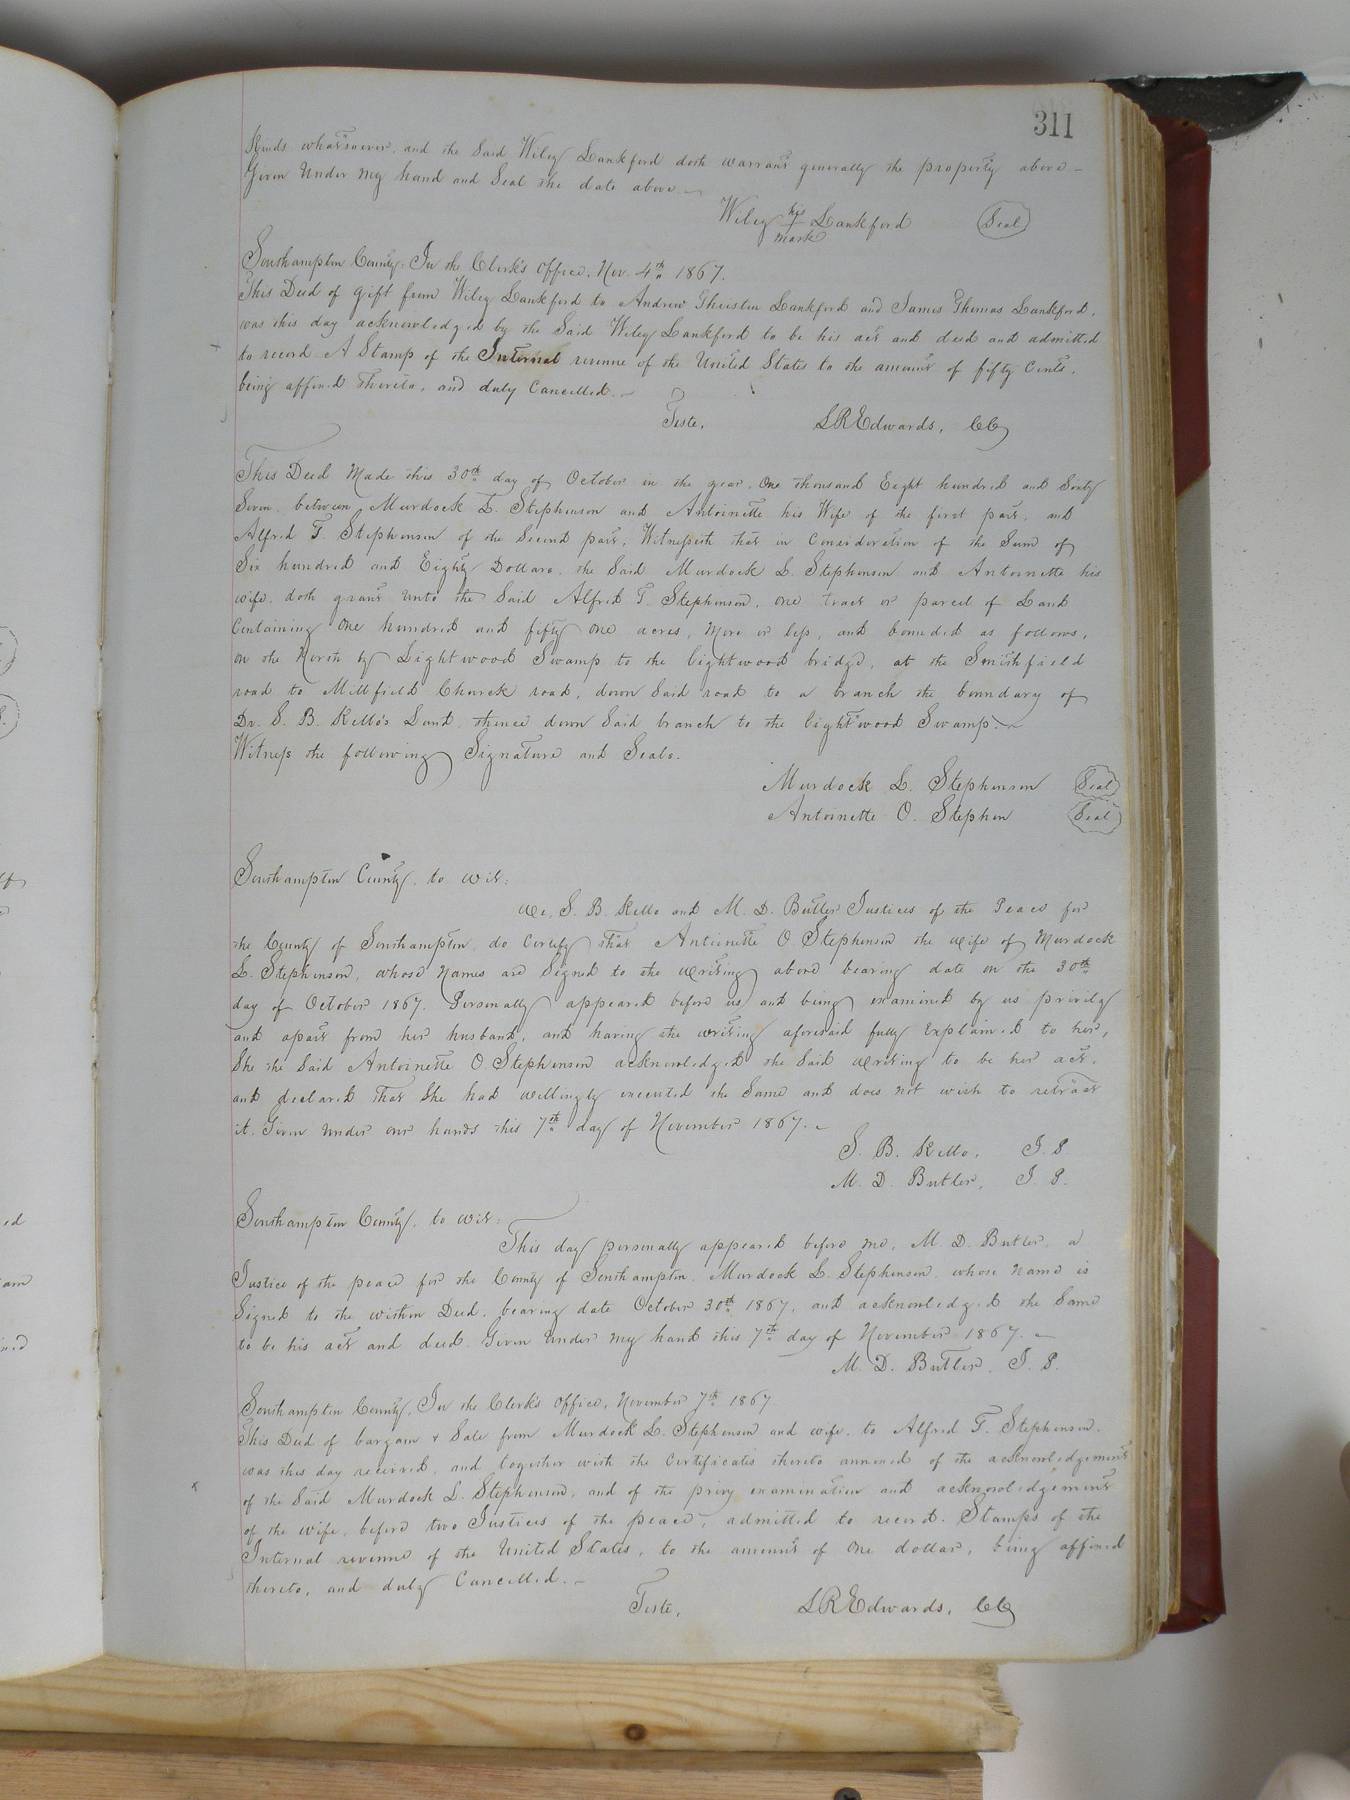 311
Kinds whatsoever, and the Said Wiley Lankford doth warrant generally the property above —
Given Under My hand and Seal the date above —
Wiley his Lankford Seal
mark
Southampton County, In the Clerk's Office, Nov. 4th 1867.
This Deed of gift from Wiley Lankford to Andrew Lankford and James Thomas Lankford,
was this day acknowledged by the Said Wiley Lankford to be his act and deed and admitted
to record. A Stamp of the Internal revenue of the United States to the amount of fifty Cents,
being affixed thereto, and duly Cancelled. —
Teste, LREdwards, CC
This Deed Made this 30th day of October in the year, One thousand Eight hundred and Sixty
Seven, between Murdock L. Stephenson and Antoinette his Wife of the first part, and
Alfred T. Stephenson of the Second part, Witnesseth that in Consideration of the Sum of
Six hundred and Eighty Dollars, the Said Murdock L. Stephenson and Antoinette his
wife, doth grant Unto the Said Alfred T. Stephenson, One tract or parcel of Land
Containing One hundred and fifty one acres, More or less, and bounded as follows,
on the North by Lightwood Swamp to the lightwood bridge, at the Smithfield
road to Millfield Church road, down Said road to a branch the boundary of
Dr. S. B. Kello's Land, thence down Said branch to the lightwood Swamp. —
Witness the following Signature and Seals.
Murdock L. Stephenson Seal
Antoinette O. Stephen Seal
Southampton County, to wit:
We, S. B. Kello and M. D. Butler Justices of the Peace for
the County of Southampton, do Certify that Antoinette O. Stephenson the wife of Murdock
L. Stephenson, whose Names are Signed to the writing above bearing date on the 30th
day of October 1867. Personally appeared before us and being examined by us privily
and apart from her husband, and having the writing aforesaid fully Explained to her,
She the Said Antoinette O Stephenson acknowledged the Said writing to be her act,
and declared that She had willingly executed the Same and does not wish to retract
it. Given under our hands this 7th day of November 1867. —
S. B. Kello, J. P.
M. D. Butler, J. P.
Southampton County, to wit:
This day personally appeared before me, M. D. Butler, a
Justice of the peace for the County of Southampton, Murdock L. Stephenson, whose Name is
Signed to the within Deed, bearing date October 30th 1867, and acknowledged the Same
to be his act and deed. Given Under My hand this 7th day of November 1867. —
M. D. Butler, J. P.
Southampton County, In the Clerk's Office, November 7th 1867
This Deed of bargain & Sale from Murdock L. Stephenson and wife, to Alfred T. Stephenson,
was this day received, and together with the Certificates thereto annexed of the acknowledgement
of the Said Murdock L. Stephenson, and of the privy examination and acknowledgement
of the wife, before two Justices of the peace, admitted to record. Stamps of the
Internal revenue of the United States, to the amount of One dollar, being affixed
thereto, and duly Cancelled. —
Teste, LREdwards, CC